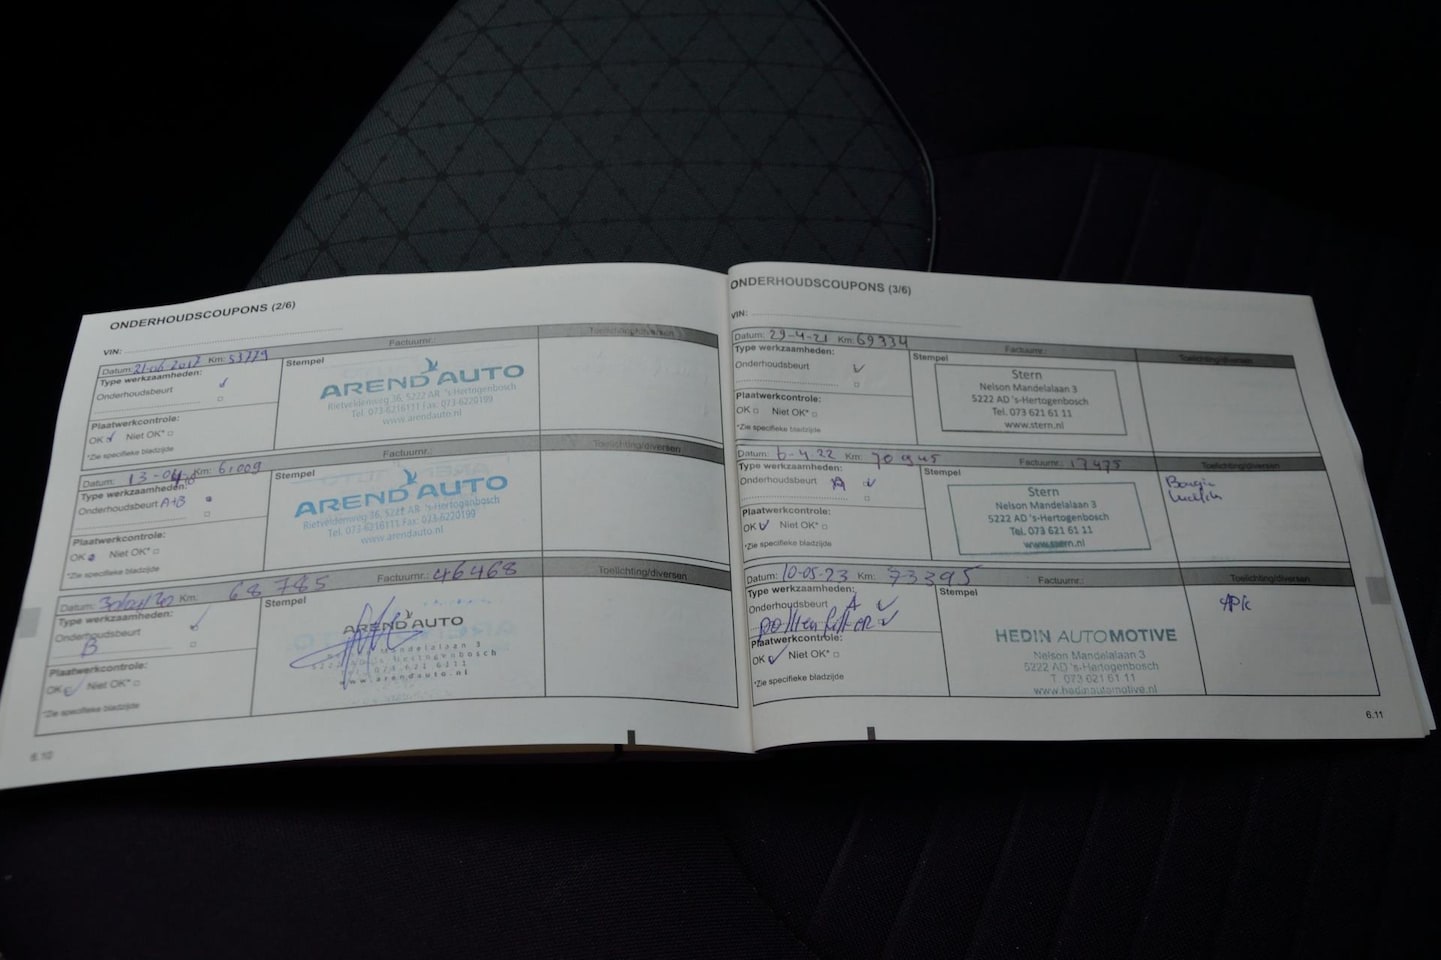 ONDERHOUDSCOUPONS (2/6)
VIN:
Datum: 21-06-2017 Km: 53779 Factuurnr.: Toelichting/diversen
Type werkzaamheden:
Onderhoudsbeurt
Stempel
AREND AUTO
Rietveldenweg 36, 5222 AR 's-Hertogenbosch
Tel. 073-6216111 Fax: 073-6270199
www.arendauto.nl
Plaatwerkcontrole:
OK Niet OK*
*Zie specifieke bladzijde
Datum: 13-04- Km: 61009 Toelichting/diversen
Type werkzaamheden:
Onderhoudsbeurt A+B
Stempel
AREND AUTO
Rietveldenweg 36, 5222 AR 's-Hertogenbosch
Tel. 073-6216111 Fax: 073-6270199
www.arendauto.nl
Plaatwerkcontrole:
OK Niet OK*
*Zie specifieke bladzijde
Datum: Km: 68785 Factuurnr.: 46468 Toelichting/diversen
Type werkzaamheden:
Onderhoudsbeurt
B
Stempel
AREND AUTO
Nelson Mandelalaan 3
's-Hertogenbosch
073 621 6111
www.arendauto.nl
Plaatwerkcontrole:
OK Niet OK*
*Zie specifieke bladzijde
6.10
ONDERHOUDSCOUPONS (3/6)
VIN:
Datum: 29-4-21 Km: 69334 Factuurnr.: Toelichting/diversen
Type werkzaamheden:
Onderhoudsbeurt
Stempel
Stern
Nelson Mandelalaan 3
5222 AD 's-Hertogenbosch
Tel. 073 621 61 11
www.stern.nl
Plaatwerkcontrole:
OK Niet OK*
*Zie specifieke bladzijde
Datum: 6-4-22 Km: 70945 Factuurnr.: 17475 Toelichting/diversen
Type werkzaamheden:
Onderhoudsbeurt A
Stempel
Stern
Nelson Mandelalaan 3
5222 AD 's-Hertogenbosch
Tel. 073 621 61 11
www.stern.nl
Plaatwerkcontrole:
OK Niet OK*
*Zie specifieke bladzijde
Datum: 10-05-23 Km: 73395 Factuurnr.: Toelichting/diversen
Type werkzaamheden:
Onderhoudsbeurt A
Stempel
APK
HEDIN AUTOMOTIVE
Nelson Mandelalaan 3
5222 AD 's-Hertogenbosch
T. 073 621 61 11
www.hedinautomotive.nl
Plaatwerkcontrole:
OK Niet OK*
*Zie specifieke bladzijde
6.11